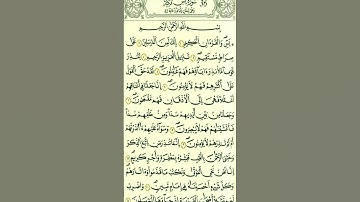 36 سورة يس مكية
بِسْمِ اللَّهِ الرَّحْمَٰنِ الرَّحِيمِ
يسٓ وَالْقُرْآنِ الْحَكِيمِ إِنَّكَ لَمِنَ الْمُرْسَلِينَ عَلَىٰ
صِرَاطٍ مُسْتَقِيمٍ تَنْزِيلَ الْعَزِيزِ الرَّحِيمِ لِتُنْذِرَ
قَوْمًا مَا أُنْذِرَ آبَاؤُهُمْ فَهُمْ غَافِلُونَ لَقَدْ حَقَّ الْقَوْلُ
عَلَىٰ أَكْثَرِهِمْ فَهُمْ لَا يُؤْمِنُونَ إِنَّا جَعَلْنَا فِي أَعْنَاقِهِمْ
أَغْلَالًا فَهِيَ إِلَى الْأَذْقَانِ فَهُمْ مُقْمَحُونَ
وَجَعَلْنَا مِنْ بَيْنِ أَيْدِيهِمْ سَدًّا وَمِنْ خَلْفِهِمْ سَدًّا
فَأَغْشَيْنَاهُمْ فَهُمْ لَا يُبْصِرُونَ وَسَوَاءٌ عَلَيْهِمْ أَأَنْذَرْتَهُمْ
أَمْ لَمْ تُنْذِرْهُمْ لَا يُؤْمِنُونَ إِنَّمَا تُنْذِرُ مَنِ اتَّبَعَ الذِّكْرَ
وَخَشِيَ الرَّحْمَٰنَ بِالْغَيْبِ فَبَشِّرْهُ بِمَغْفِرَةٍ وَأَجْرٍ كَرِيمٍ
إِنَّا نَحْنُ نُحْيِي الْمَوْتَىٰ وَنَكْتُبُ مَا قَدَّمُوا وَآثَارَهُمْ
وَكُلَّ شَيْءٍ أَحْصَيْنَاهُ فِي إِمَامٍ مُبِينٍ وَاضْرِبْ